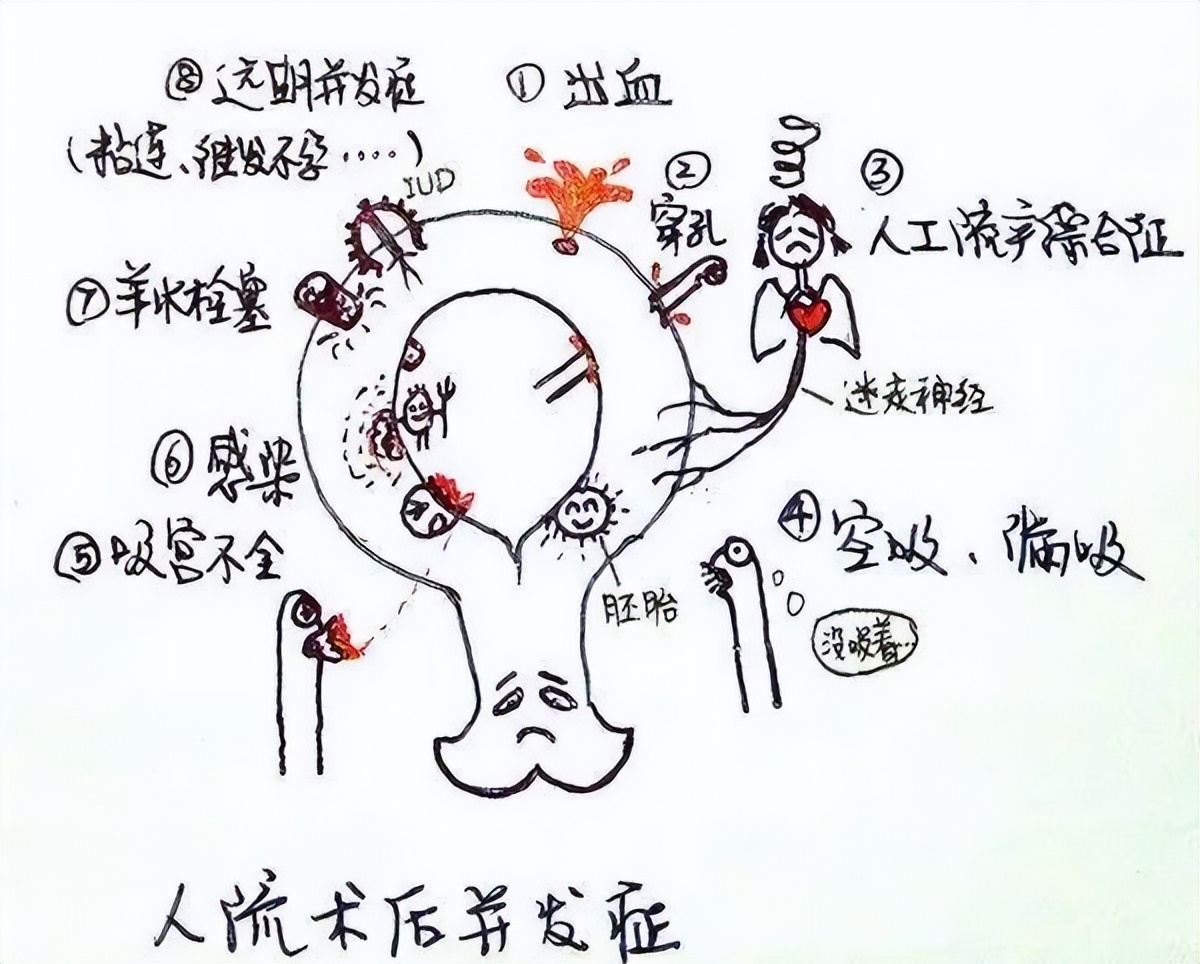 ⑧远期并发症
(粘连、继发不孕····)
IUD
①出血
②
穿孔
③
人工流产综合症
迷走神经
⑦羊水栓塞
⑥感染
⑤吸宫不全
④空吸、漏吸
没吸着…
胚胎
人流术后并发症